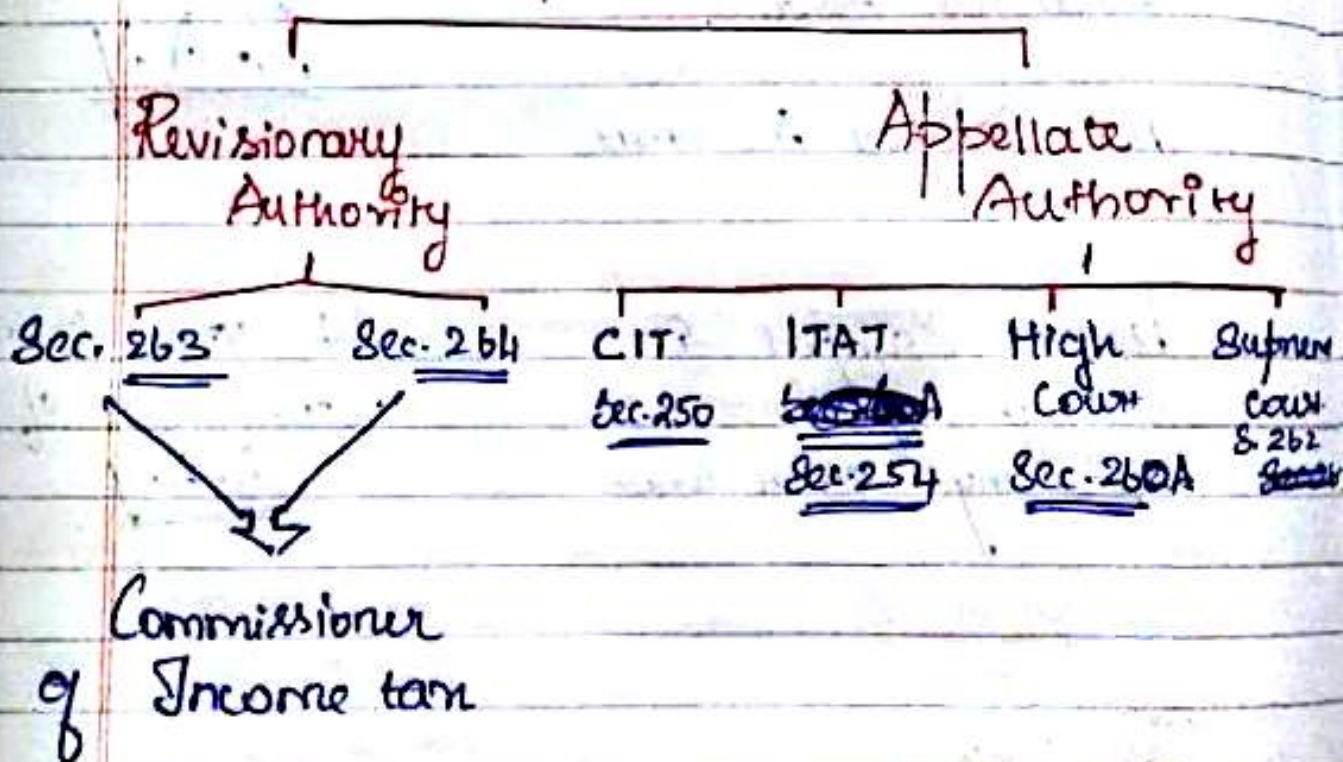 Revisionary
Authority
Appellate
Authority
Sec. 263
Sec. 264
CIT.
Sec. 250
ITAT.
Sec. 254
High
Court
Sec. 260A
Suprem
Court
S. 262
Commissioner
of Income tax